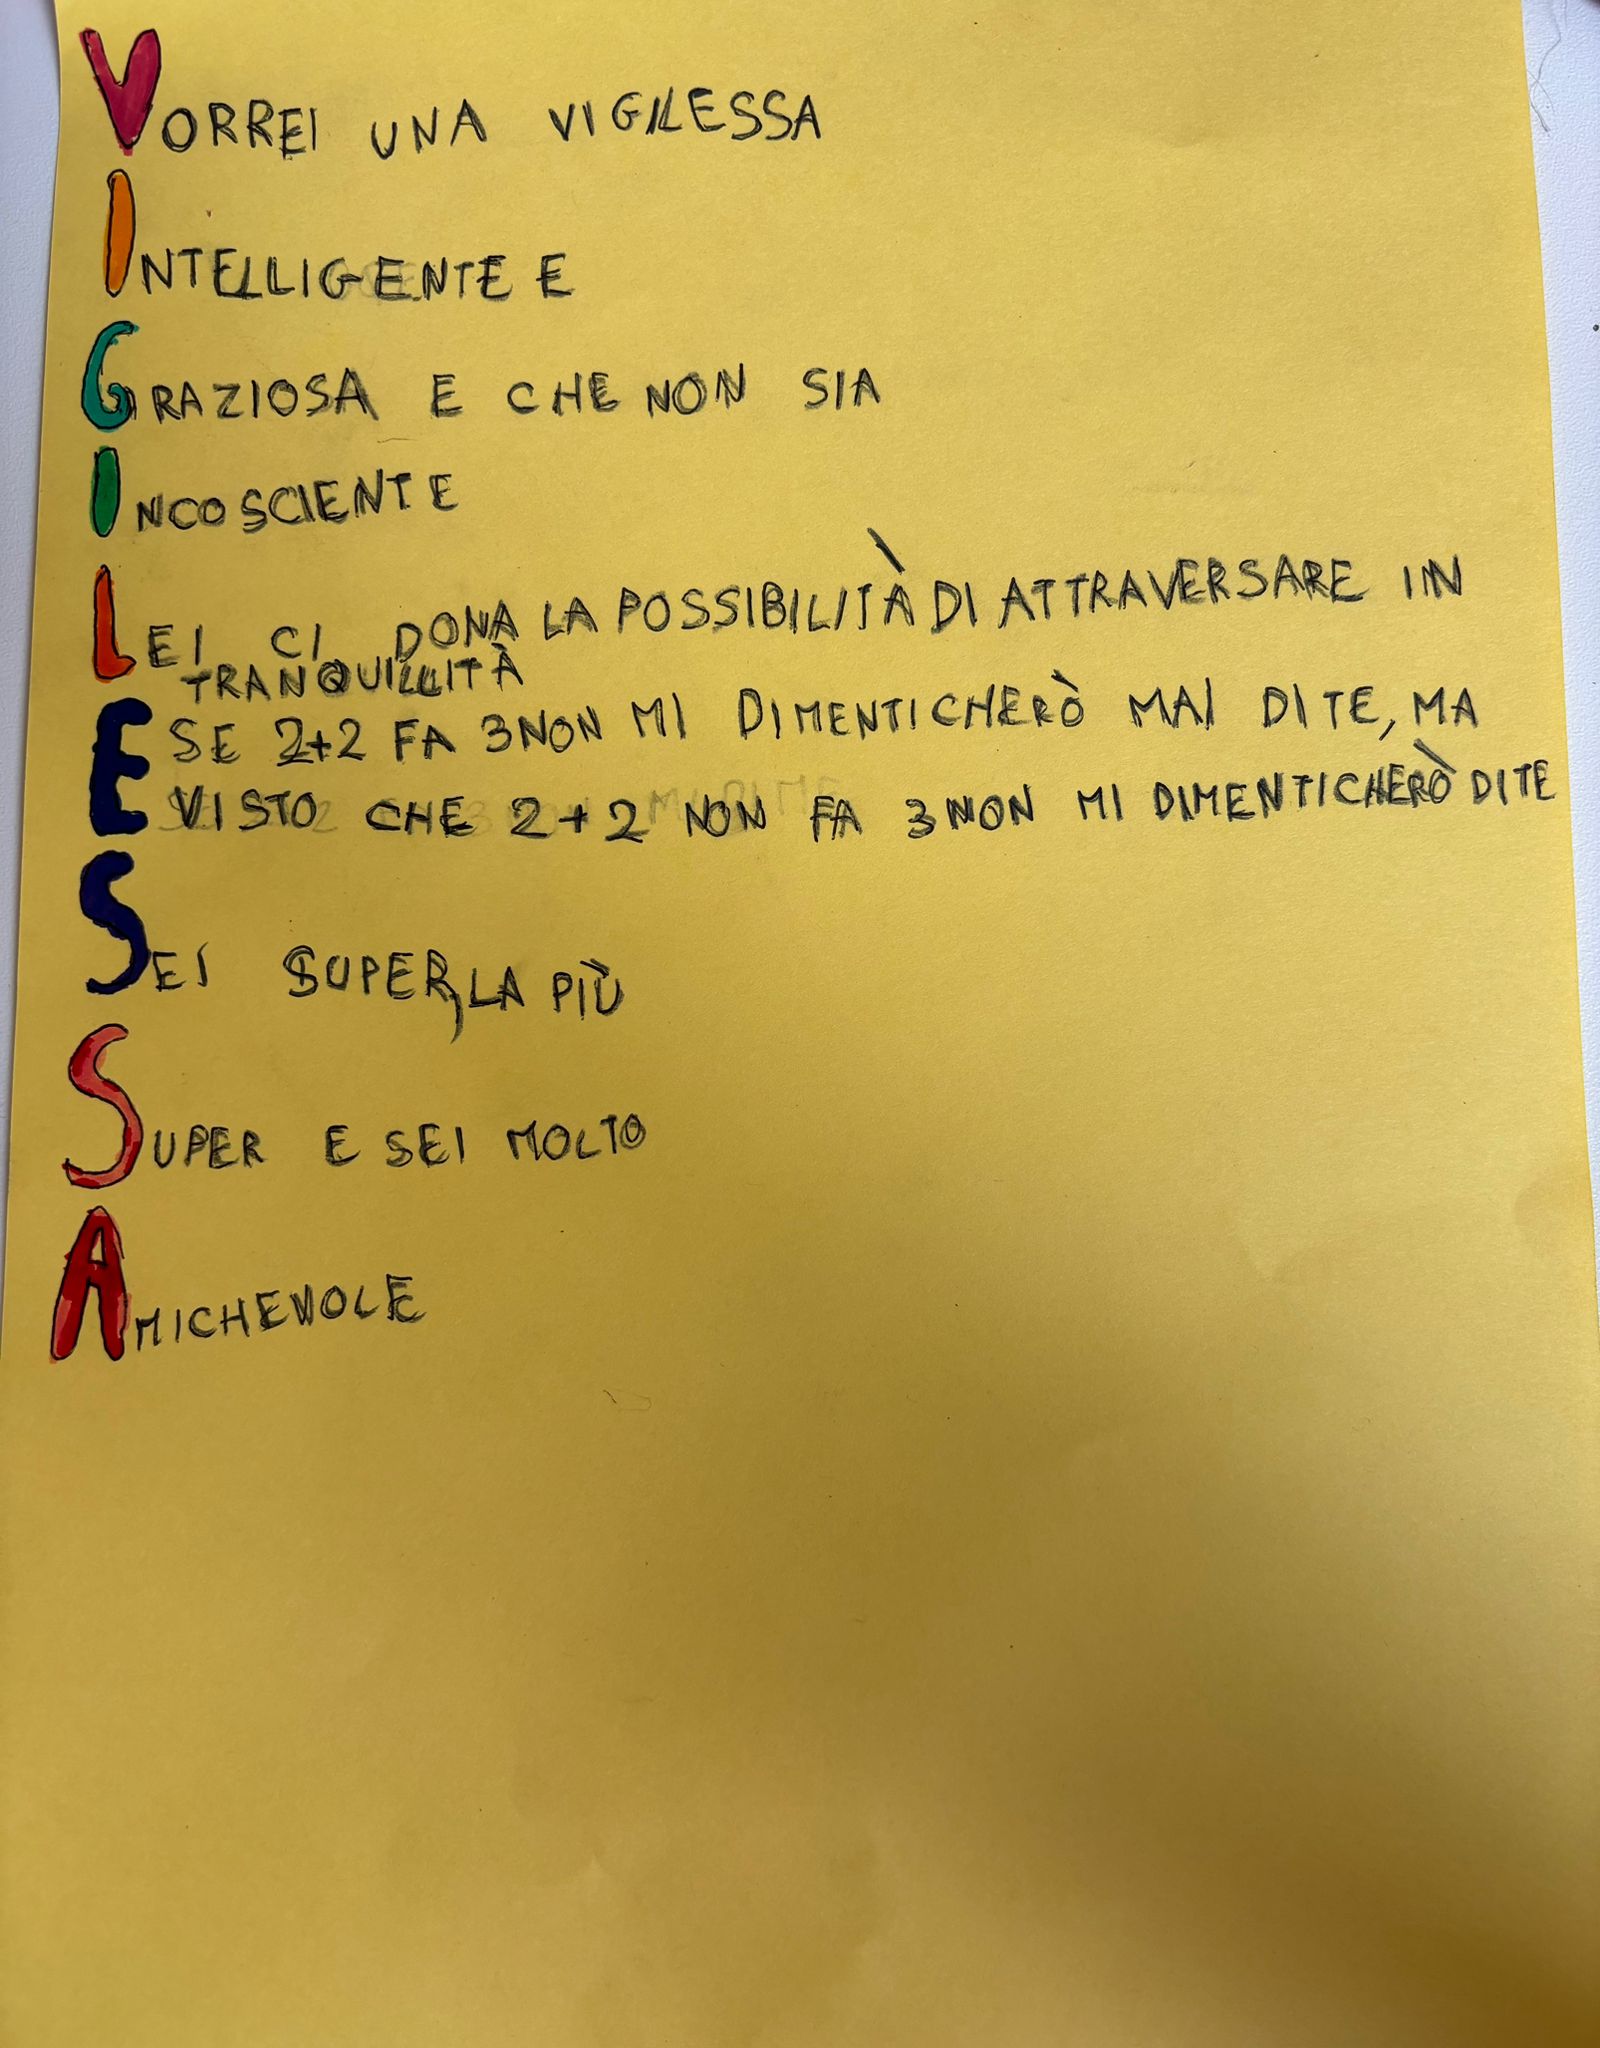 VORREI UNA VIGILESSA
INTELLIGENTE E
GRAZIOSA E CHE NON SIA
INCOSCIENTE
LEI CI DONA LA POSSIBILITÀ DI ATTRAVERSARE IN
TRANQUILLITÀ
E SE 2+2 FA 3 NON MI DIMENTICHERÒ MAI DI TE, MA
VISTO CHE 2+2 NON FA 3 NON MI DIMENTICHERÒ DI TE
SEI SUPER, LA PIÙ
SUPER E SEI MOLTO
AMICHEVOLE